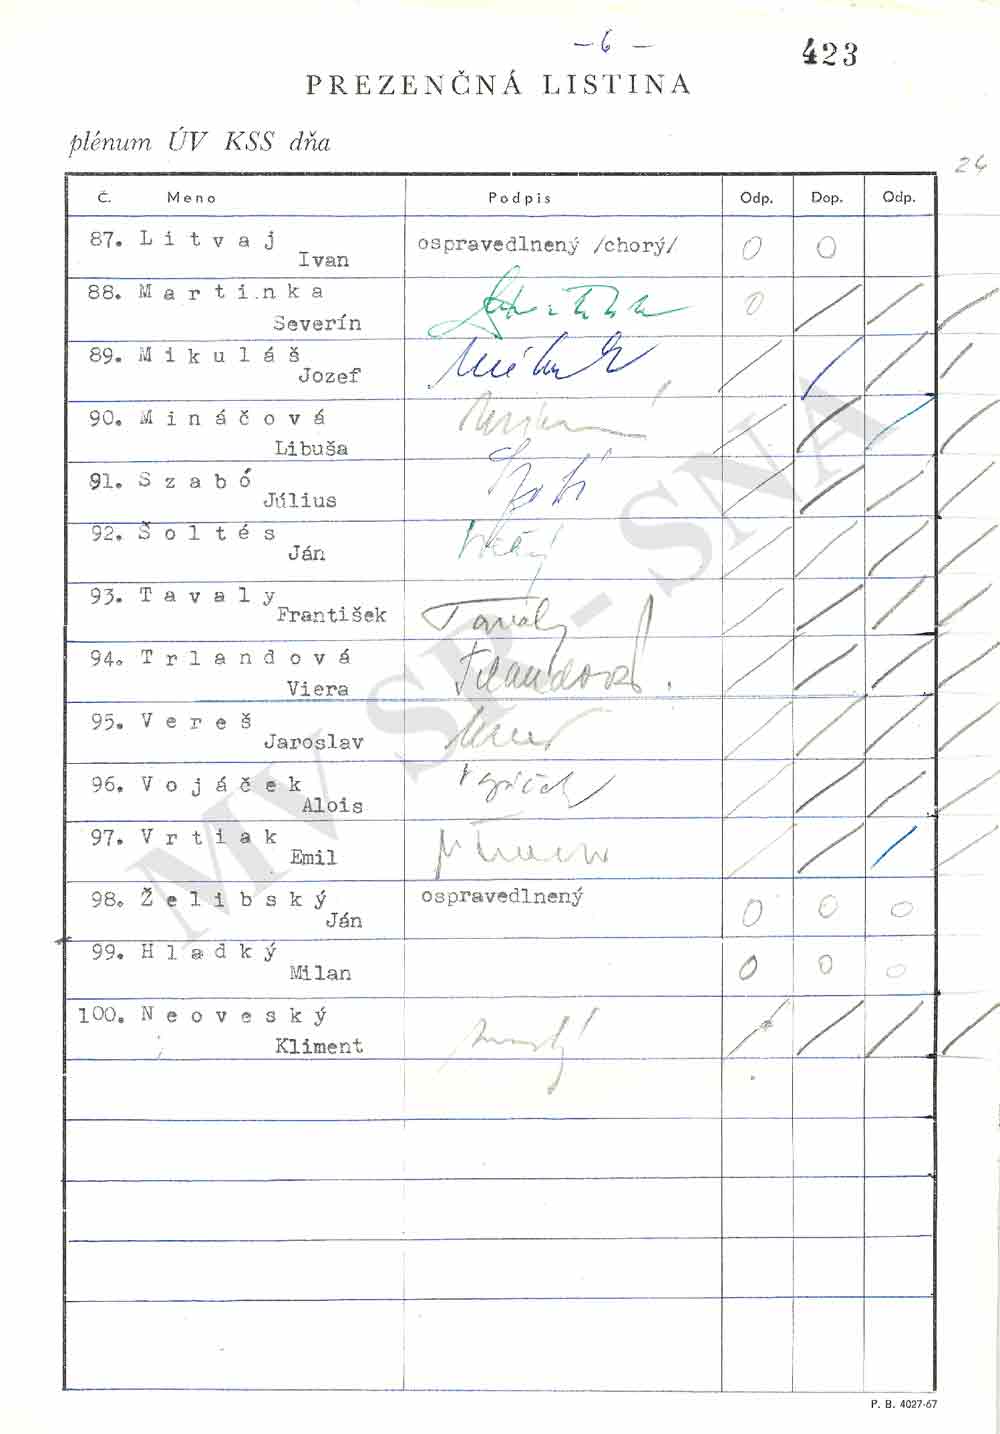 — 6 —
423
PREZENČNÁ LISTINA
plénum ÚV KSS dňa
24
Č. Meno Podpis Odp. Dop. Odp.
87. Litvaj ospravedlnený /chorý/ 0 0
Ivan
88. Martinka 0
Severín
89. Mikuláš
Jozef
90. Mináčová
Libuša
91. Szabó
Július
92. Šoltés
Ján
93. Tavaly
František Tavaly
94. Trlandová Trlandová.
Viera
95. Vereš
Jaroslav
96. Vojáček Vojáček
Alois
97. Vrtiak
Emil
98. Želibský ospravedlnený 0 0 0
Ján
99. Hladký 0 0 0
Milan
100. Neoveský
Kliment
P. B. 4027-67
MV SR - SNA